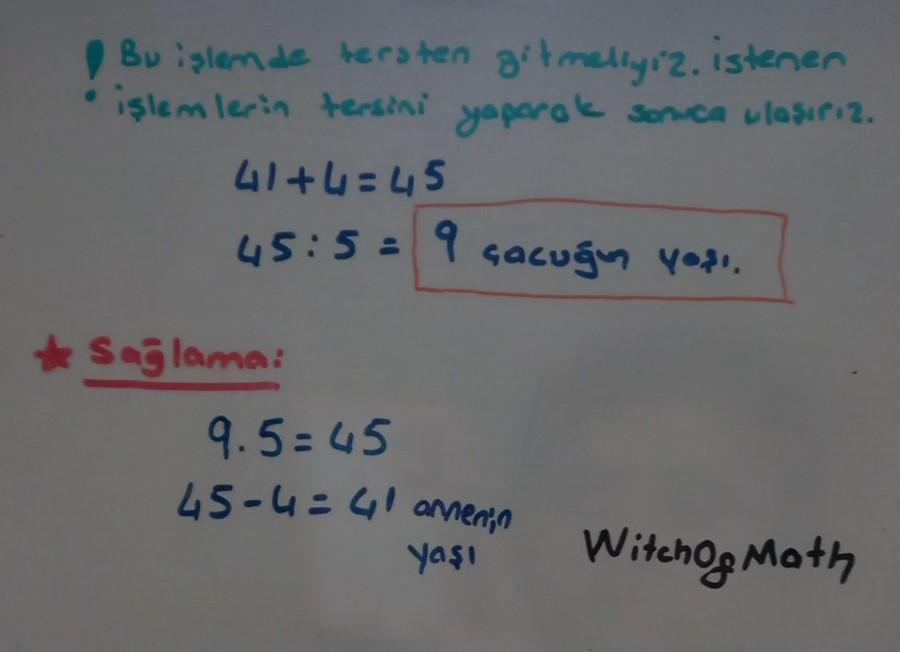 ! Bu işlemde tersten gitmeliyiz. istenen
işlemlerin tersini yaparak sonuca ulaşırız.
41+4=45
45:5= 9 çocuğun yaşı.
★ Sağlama:
9.5=45
45-4=41 annenin
yaşı
WitchOfMath